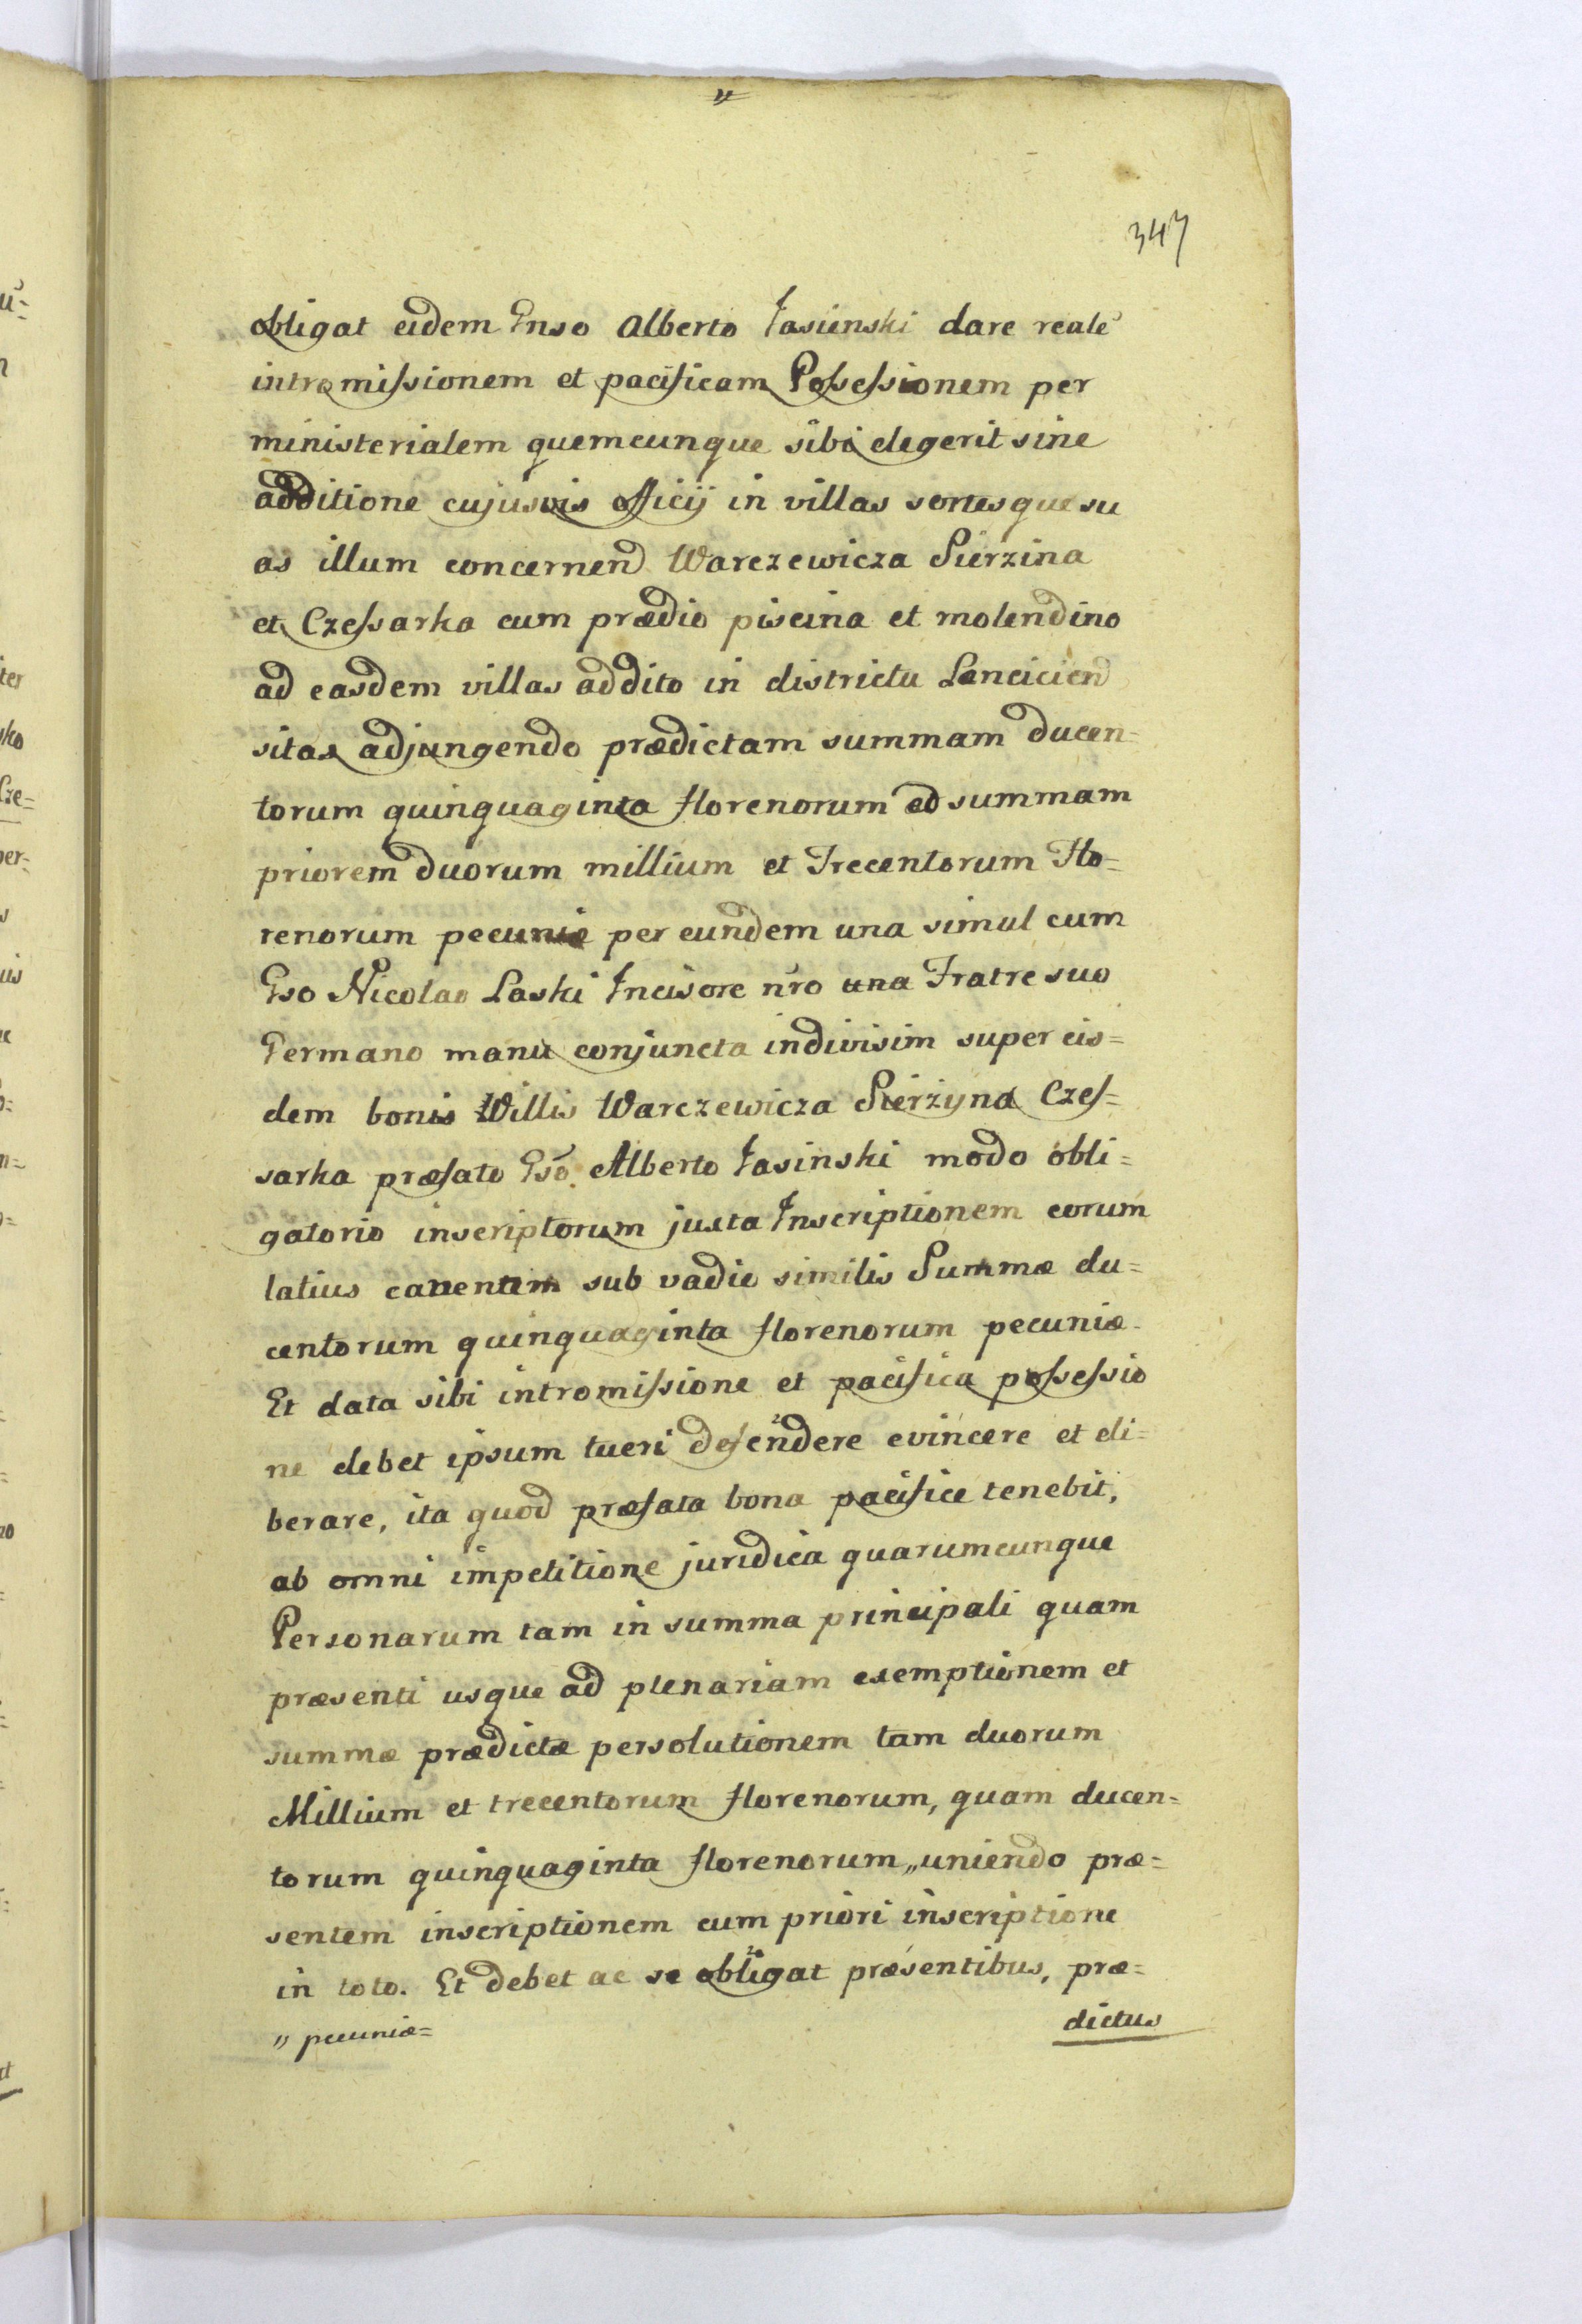 347
obligat eidem Gnso Alberto Jasienski dare reale
intromissionem et pacificam Possessionem per
ministerialem quemcunque sibi elegerit sine
additione cujusvis Officij in villas sortesque su
as illum concernen Warczewicza Sierzina
et Czessarka cum prædio piscina et molendino
ad easdem villas addito in districtu Lancicien
sitas adjungendo prædictam summam ducen=
torum quinquaginta florenorum ad summam
priorem duorum millium et Trecentorum Flo=
renorum pecuniæ per eundem una simul cum
Gso Nicolao Laski Incisore nro una Fratre suo
Germano manu conjuncta indivisim super eis=
dem bonis Willis Warczewicza Sierżyna Czes=
sarka præfato Gso. Alberto Jasinski modo obli=
gatorio inscriptorum juxta Inscriptionem eorum
latius canentem sub vadio similis Summæ du=
centorum quinquaginta florenorum pecuniæ.
Et data sibi intromissione et pacifica possessio
ne debet ipsum tueri defendere evincere et eli=
berare, ita quod præfata bona pacifice tenebit,
ab omni impetitione juridica quarumcunque
Personarum tam in summa principali quam
præsenti usque ad plenariam exemptionem et
summæ prædictæ persolutionem tam duorum
Millium et trecentorum florenorum, quam ducen=
torum quinquaginta florenorum „ uniendo præ=
sentem inscriptionem cum priori inscriptione
in toto. Et debet ac se obligat præsentibus, præ=
„ pecuniæ=
dictus